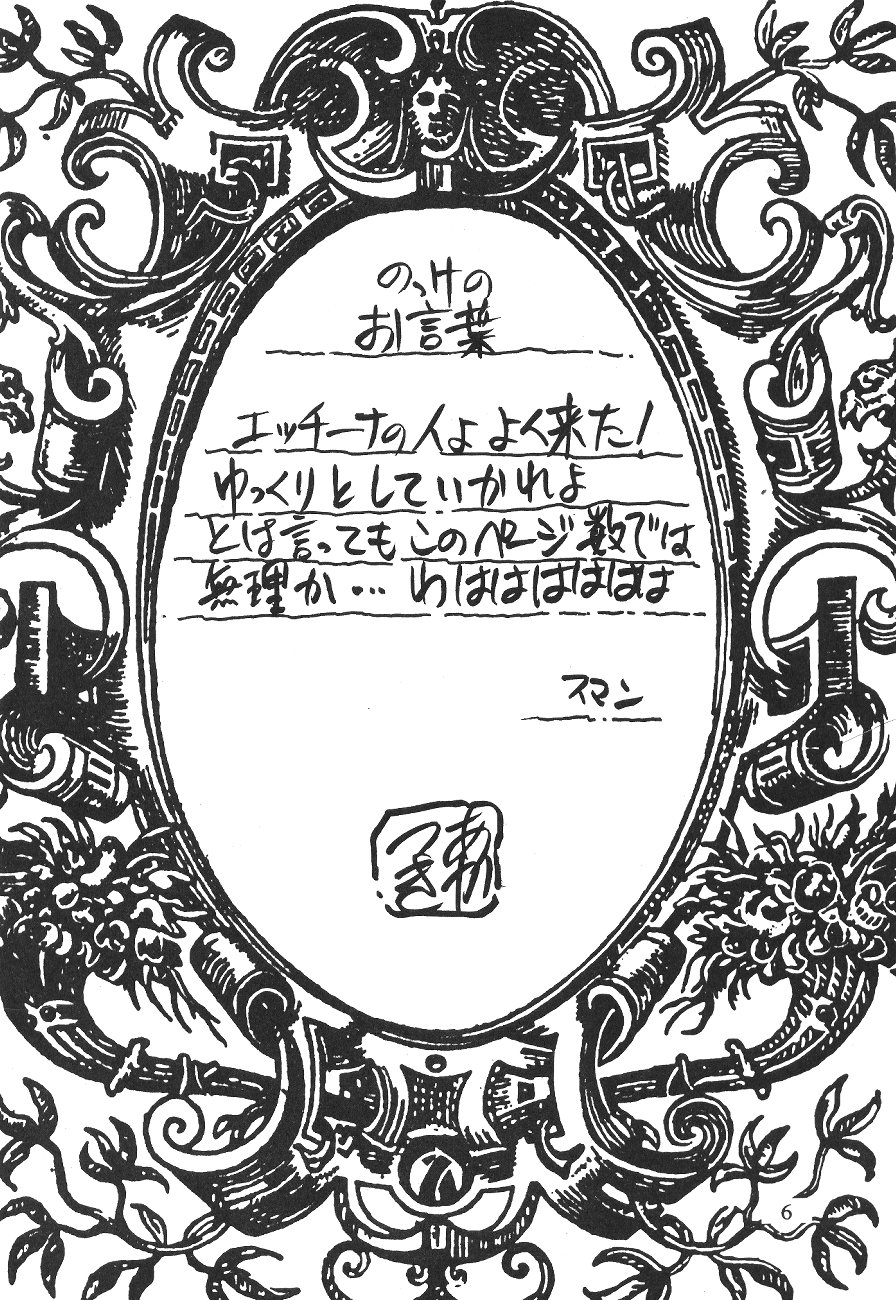 のっけの
お言葉
エッチーナの人よ よく来た!
ゆっくりとしていかれよ
とは言っても このページ数では
無理か… わはははははは
スマン
あかつき
6